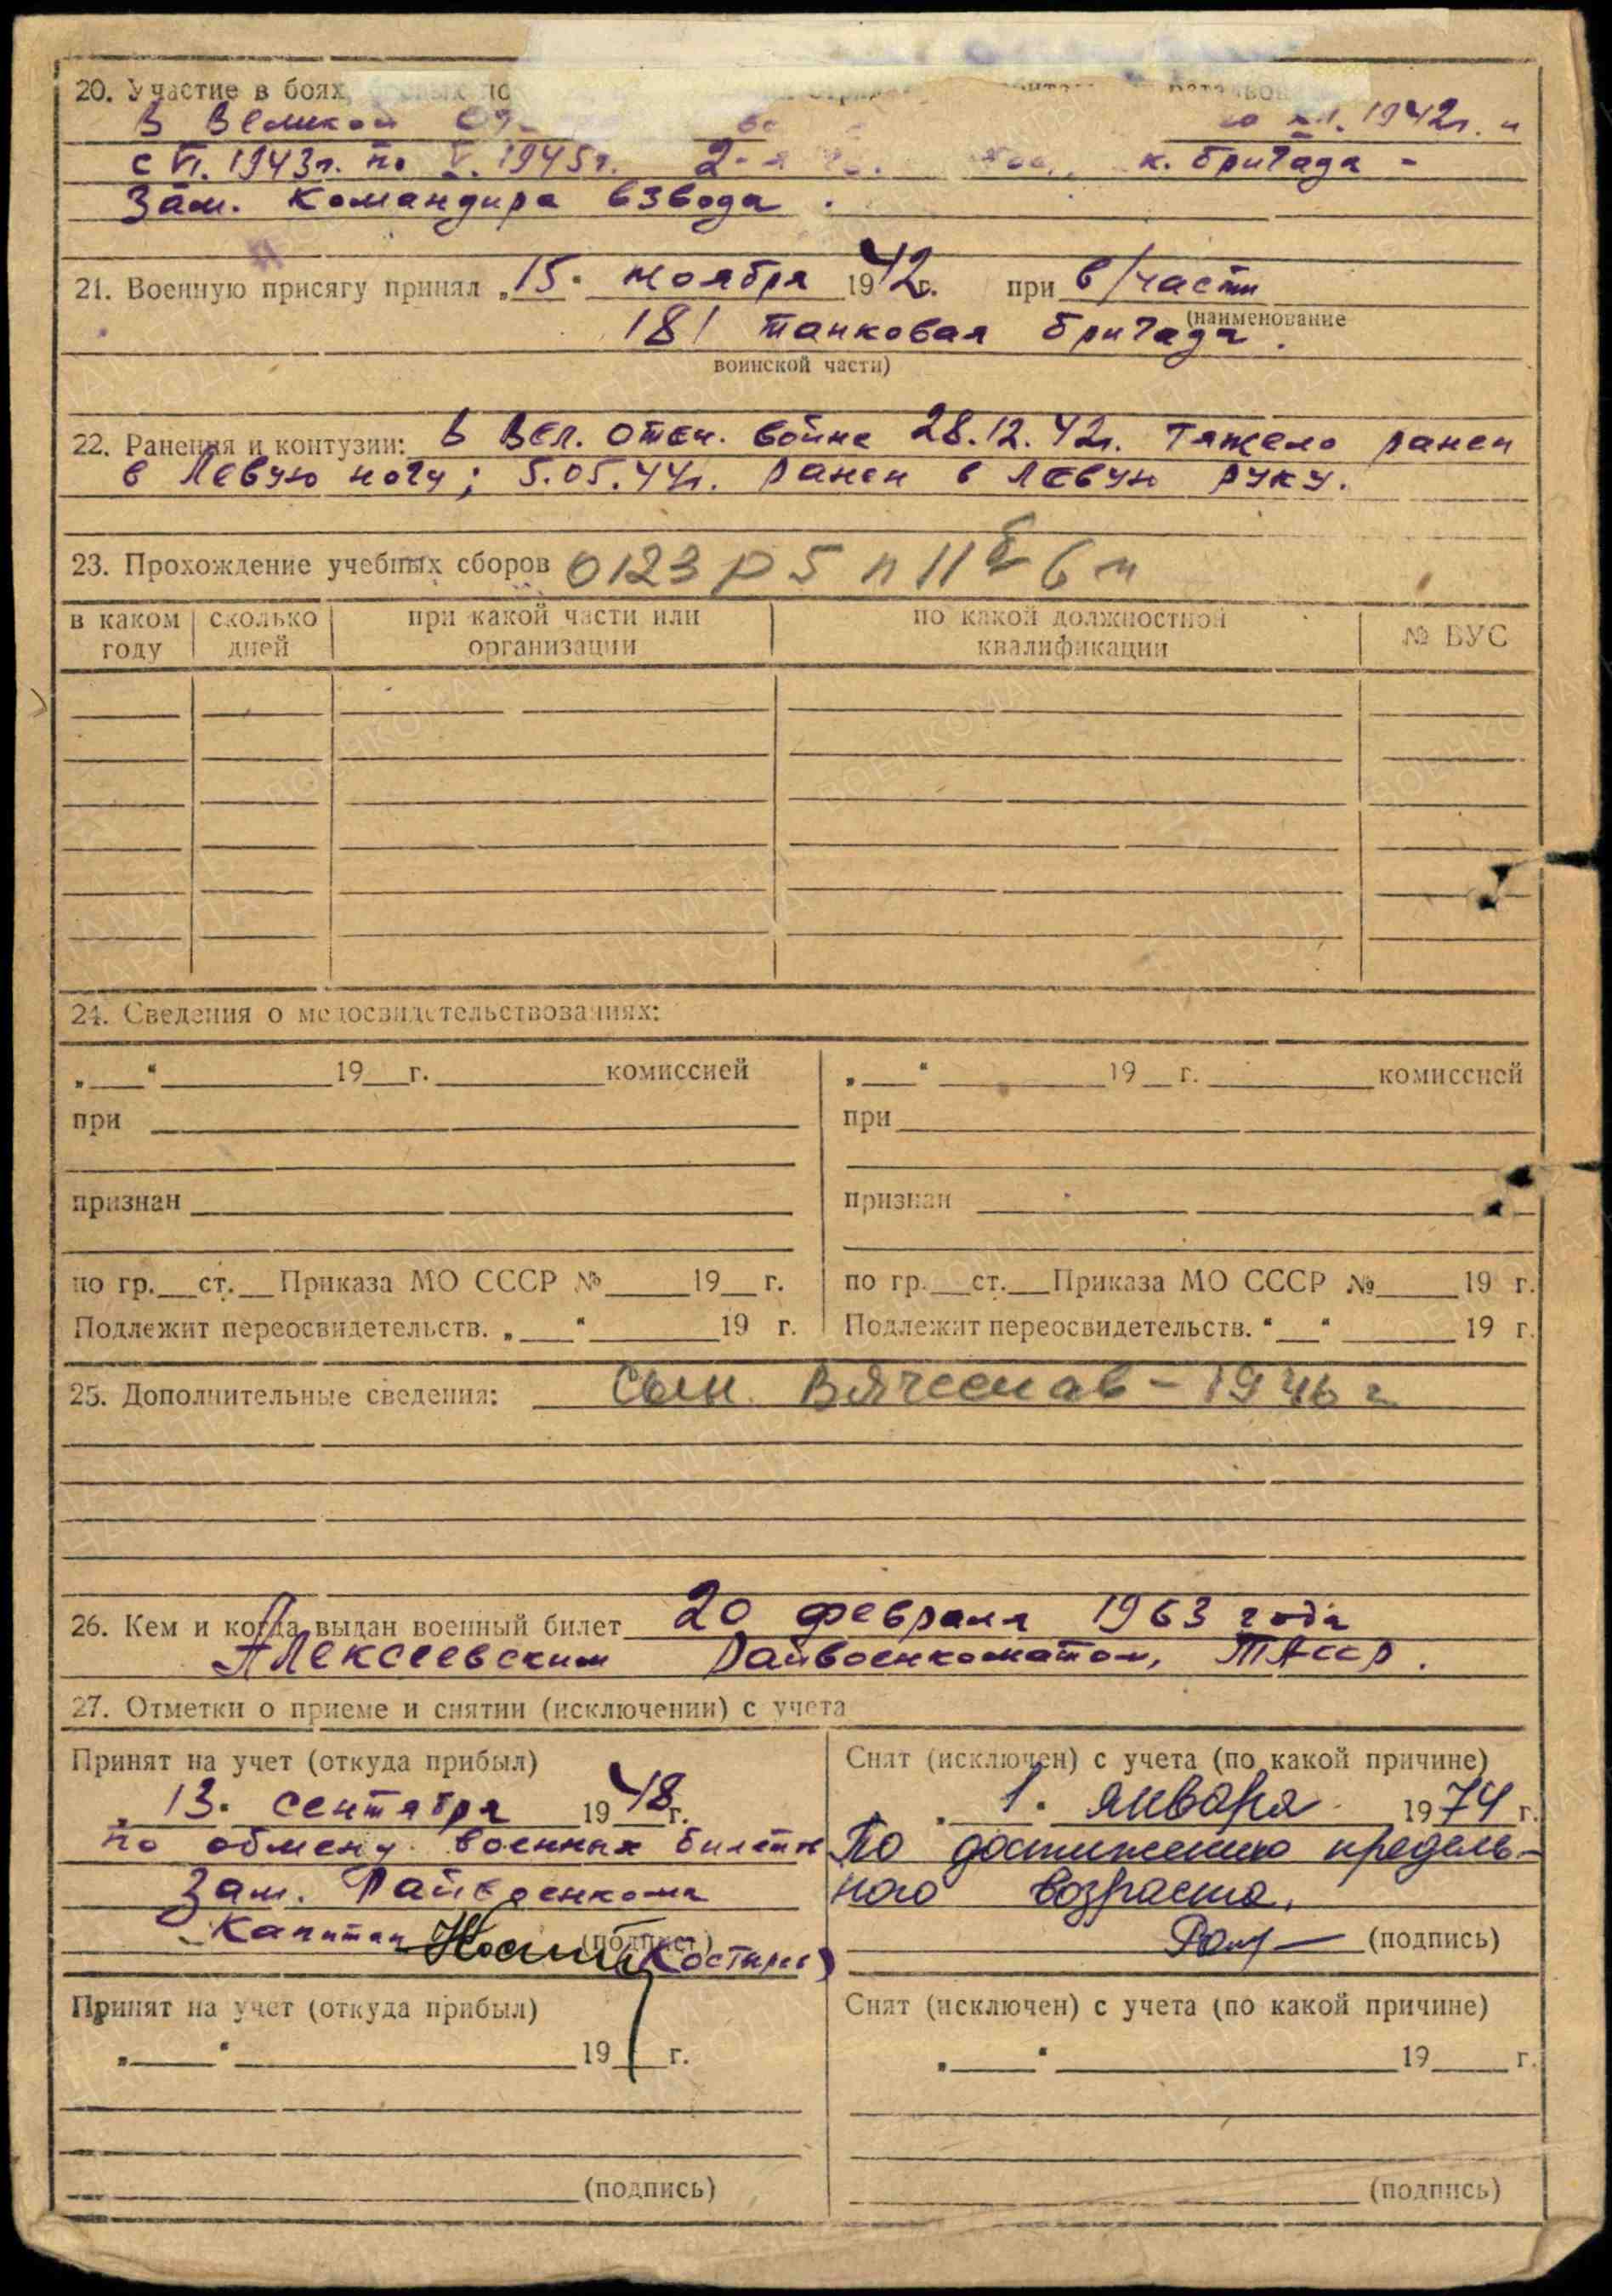 20. Участие в боях,
В Великой 1942г. и
с VI. 1943г. по V. 1945г. 2-я к. бригада -
Зам. командира взвода.
21. Военную присягу принял „15" ноября 1942г. при в/части
(наименование
181 танковая бригада.
воинской части)
22. Ранения и контузии: В Вел. Отеч. войне 28.12.42г. тяжело ранен
в левую ногу; 5.05.44г. ранен в левую руку.
23. Прохождение учебных сборов 0123
в каком году | сколько дней | при какой части или организации | по какой должностной квалификации | № ВУС
24. Сведения о медосвидетельствованиях:
„___" 19__г. комиссией „___" 19__г. комиссией
при при
признан признан
по гр.__ст.__Приказа МО СССР №____19__г. по гр.__ст.__Приказа МО СССР №____19 г.
Подлежит переосвидетельств. „___" 19 г. Подлежит переосвидетельств. "___" 19 г.
25. Дополнительные сведения: Сын. Вячеслав - 1946 г
26. Кем и когда выдан военный билет 20 февраля 1963 года
Алексеевским Райвоенкоматом, ТАССР.
27. Отметки о приеме и снятии (исключении) с учета
Принят на учет (откуда прибыл)
13. сентября 1948г.
по обмену военных билетов
Зам. Райвоенкома
Капитан (подпись)
Снят (исключен) с учета (по какой причине)
„1. января 1974 г.
По достижению предель-
ного возраста.
(подпись)
Принят на учет (откуда прибыл)
„___" 19__г.
(подпись)
Снят (исключен) с учета (по какой причине)
„___" 19__г.
(подпись)